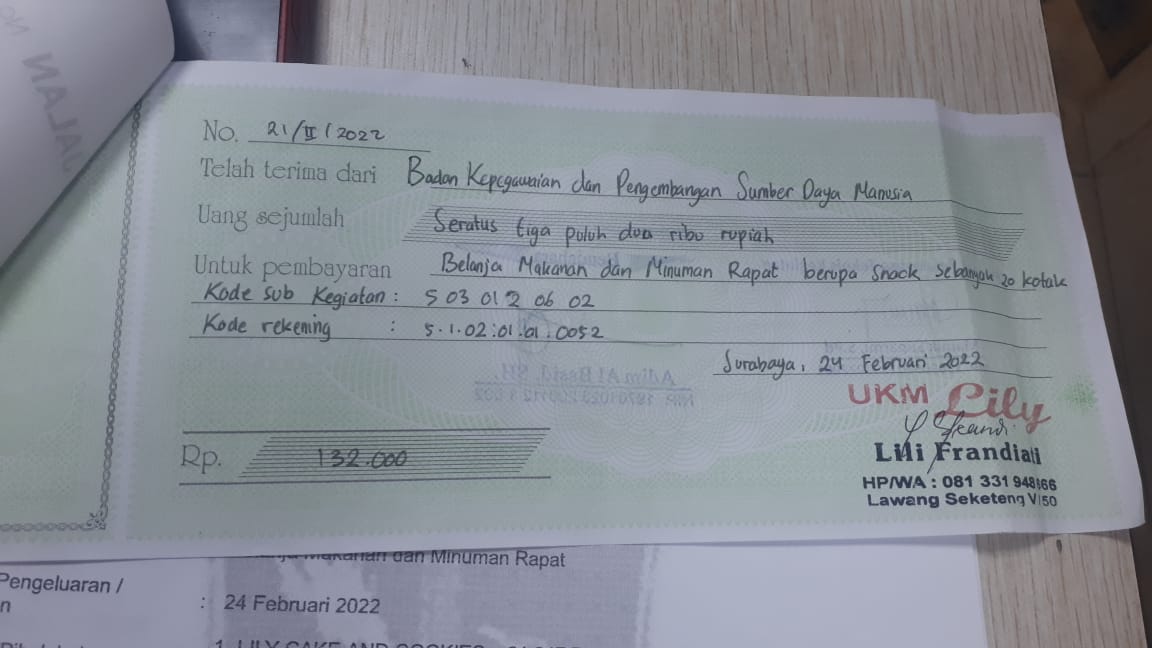 No. 21/II/2022
Telah terima dari Badan Kepegawaian dan Pengembangan Sumber Daya Manusia
Uang sejumlah Seratus tiga puluh dua ribu rupiah
Untuk pembayaran Belanja Makanan dan Minuman Rapat berupa Snack sebanyak 20 kotak
Kode Sub Kegiatan : 5 03 01 2 06 02
Kode rekening : 5.1.02.01.01.0052
Surabaya, 24 Februari 2022
UKM Lily
Lili Frandiati
Rp. 132.000
HP/WA : 081 331 948
Lawang Seketeng V/50
Makanan dan Minuman Rapat
Pengeluaran /
: 24 Februari 2022
1. LILY CAKE AND COOKIES